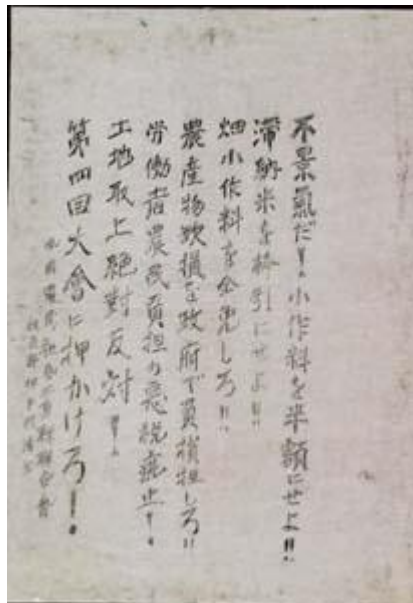 不景氣だ!小作料を半額にせよ!!
滞納米を棒引にせよ!!
畑小作料を全免しろ!!
農産物欠損を政府で負損担しろ!!
労働者農民負担の悪税廃止!
土地取上絶對反対!!
第四回大會に押かけろ!